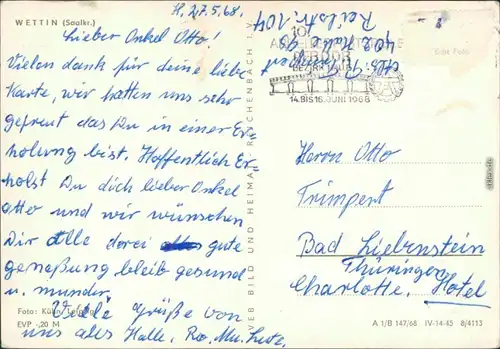 WETTIN (Saalkr.)
H. 27.5.68.
Lieber Onkel Otto!
Vielen dank für deine liebe
Karte, wir hatten uns sehr
gefreut das Du in einer Er-
holung bist. Hoffentlich Er-
holst Du dich lieber Onkel
otto und wir wünschen
Dir alle drei alles gute
geneßung bleib gesund
u. munder.
Viele grüße von
uns allen Halle, Ro. Mu. Lutz.
Foto: Kühn, Leipzig
EVP -,20 M
VEB BILD UND HEIMAT REICHENBACH I. V.
402 Halle
Reilstr. 107
10.
DER DDR
BEZIRK
14. BIS 16. JUNI 1968
Echt Foto
Herrn Otto
Trimpert
Bad Liebenstein
Thüringen
Charlotte, Hotel
A 1/B 147/68 IV-14-45 8/4113